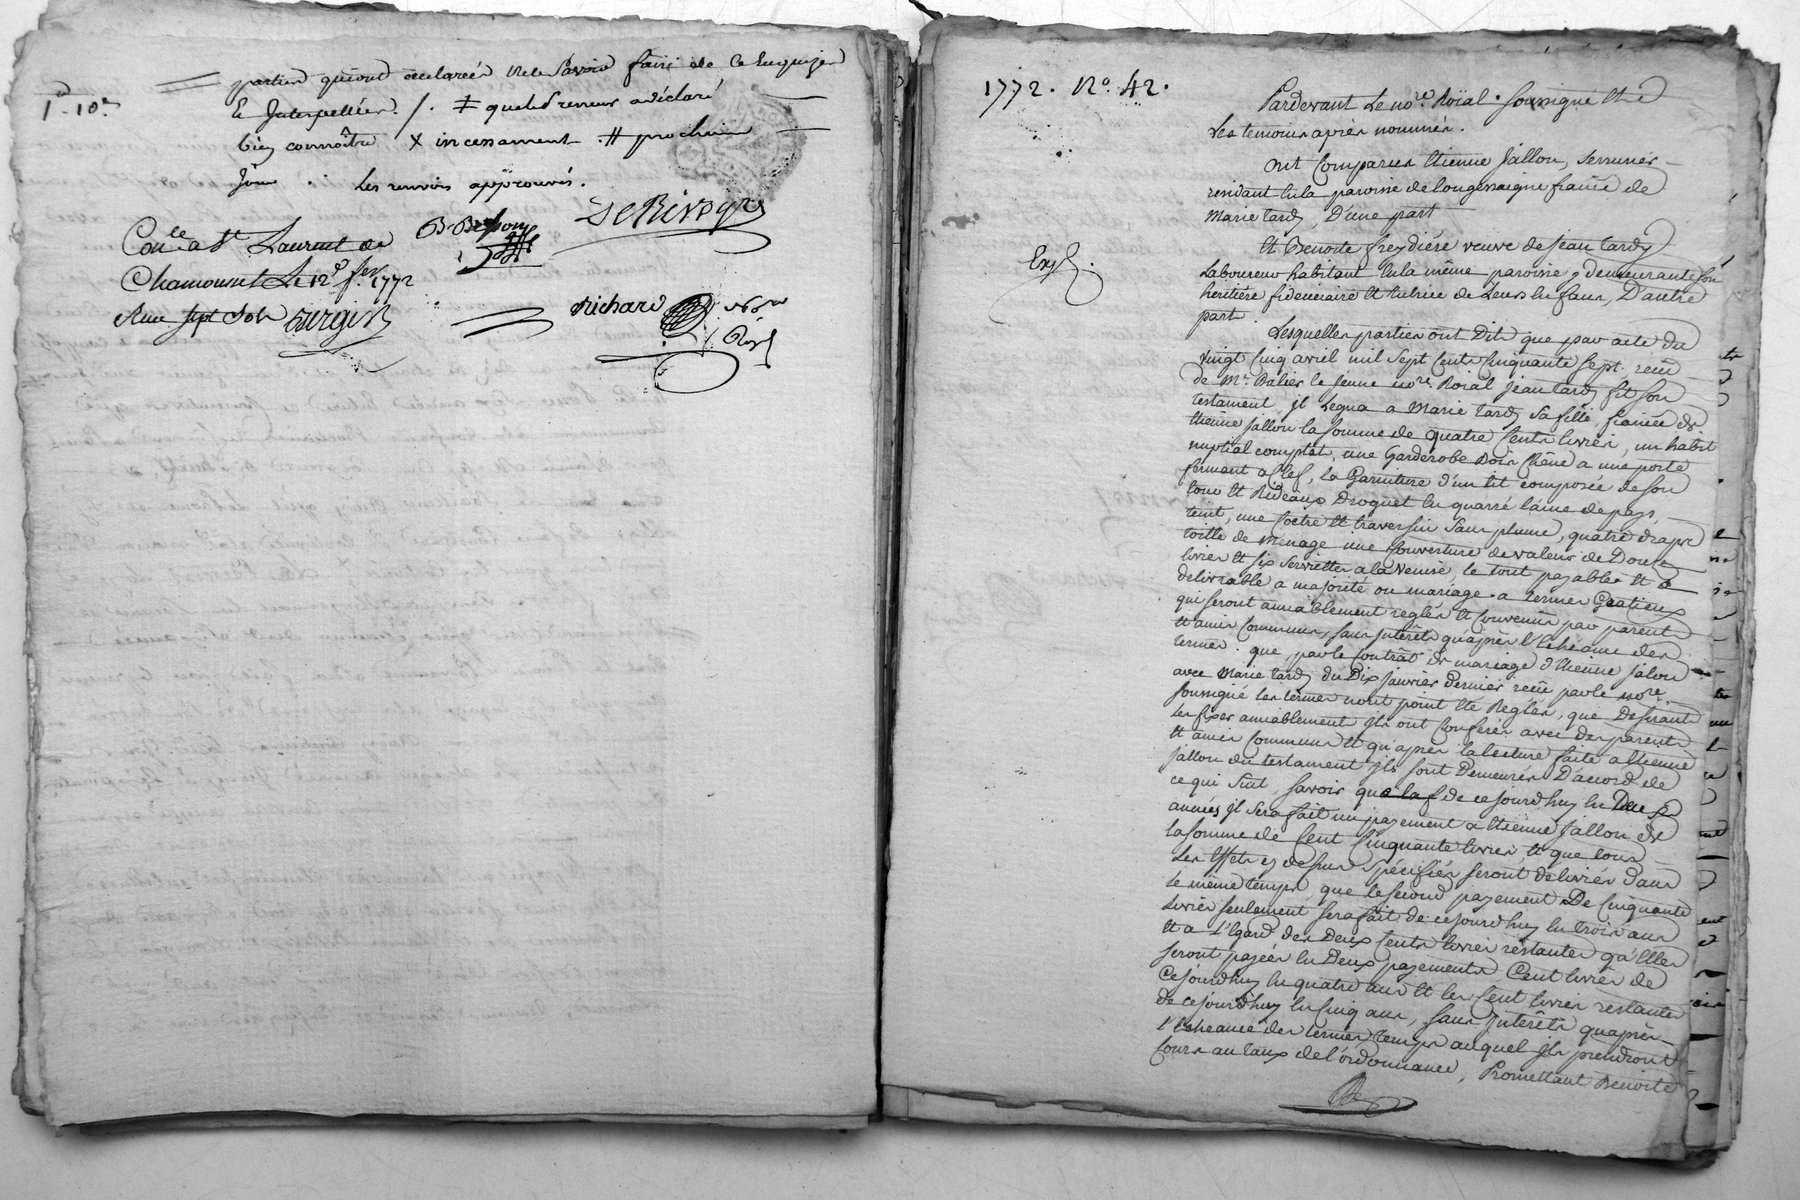 parties qui ont déclarées ne le savoir faire de ce enquizes
1d. 10s.
& Interpellées. /. ≠ quel dreneur a déclaré
bien connoître X incessament . # prochain
jour . : Les renvois approuvés.
B. Besson
DeRivoyre
Con.lé a St. Laurent de
Chamousset Le 12e fer. 1772
Reçu sept sols
Richard No.re
Roy.l
1772. No. 42.
Pardevant Le no.re Roïal soussigné Et
Les temoins après nommés.
Ont Comparus Etienne Jallon, serrurier
residant En la paroisse de Longessaigne fiancé de
Marie tardy, D'une part
Et Benoite freydiére veuve de jean tardy
Laboureur habitant En la même paroisse y demeurante, son
heritiére fiduciaire Et tutrice de Leurs Enfans, D'autre
part
Exp.
Lesquelles parties ont Dit, que par acte du
vingt Cinq avril mil sept Cents Cinquante sept, reçu
de Mr. Balier le jeune no.re Roïal jean tardy fit son
testament, Il Legua a Marie tardy sa fille, fiancée de
Etienne jallon la somme de quatre Cents livres, un habit
nuptial complet, une Garderobe Bois Chêne a une porte
fermant a Clef, la Garniture d'un lit composée de son
tour Et Rideaux Droguet En quarré laine de pays,
teint, une Coetre Et traversin sans plume, quatre draps
toille de Menage une Couverture de valeur de Douze
livres Et six serviettes a la Venise, le tout payables Et
delivrable a majorité ou mariage. a termes Gratieux
qui seront amiablement reglés Et Convenus par parents
Et amis Communs, sans Interêts qu'après l'Echéance des
termes : que, par le Contrat de mariage d'Etienne jalon
avec Marie tardy du Dix janvier Dernier reçu par le no.re
soussigné les termes n'ont point Eté Reglés, que Desirant
les fixer amiablement Ils ont Conferés avec des parents
Et amis Communs Et qu'après la lecture faite a Etienne
jallon du testament Ils sont Demeurés D'accord de
ce qui suit, savoir que de cejourdhuy En Deux
années Il sera fait un payement a Etienne Jallon de
la somme de Cent Cinquante livres, Et que tous
Les Effets cy dessus spécifiés seront délivrés dans
le même temps, que le second payement De Cinquante
Livres seulement sera fait de cejourdhuy En trois ans
Et a L'Egard des Deux Cents livres restantes qu'Elles
seront payées En Deux payements Cent livres de
Cejourdhuy En quatre ans Et les Cent livres restantes
de cejourdhuy En Cinq ans, sans Interêts qu'après
l'Echeance des termes, temps auquel Ils prendront
Cours au taux de l'ordonnance, Promettant Benoite